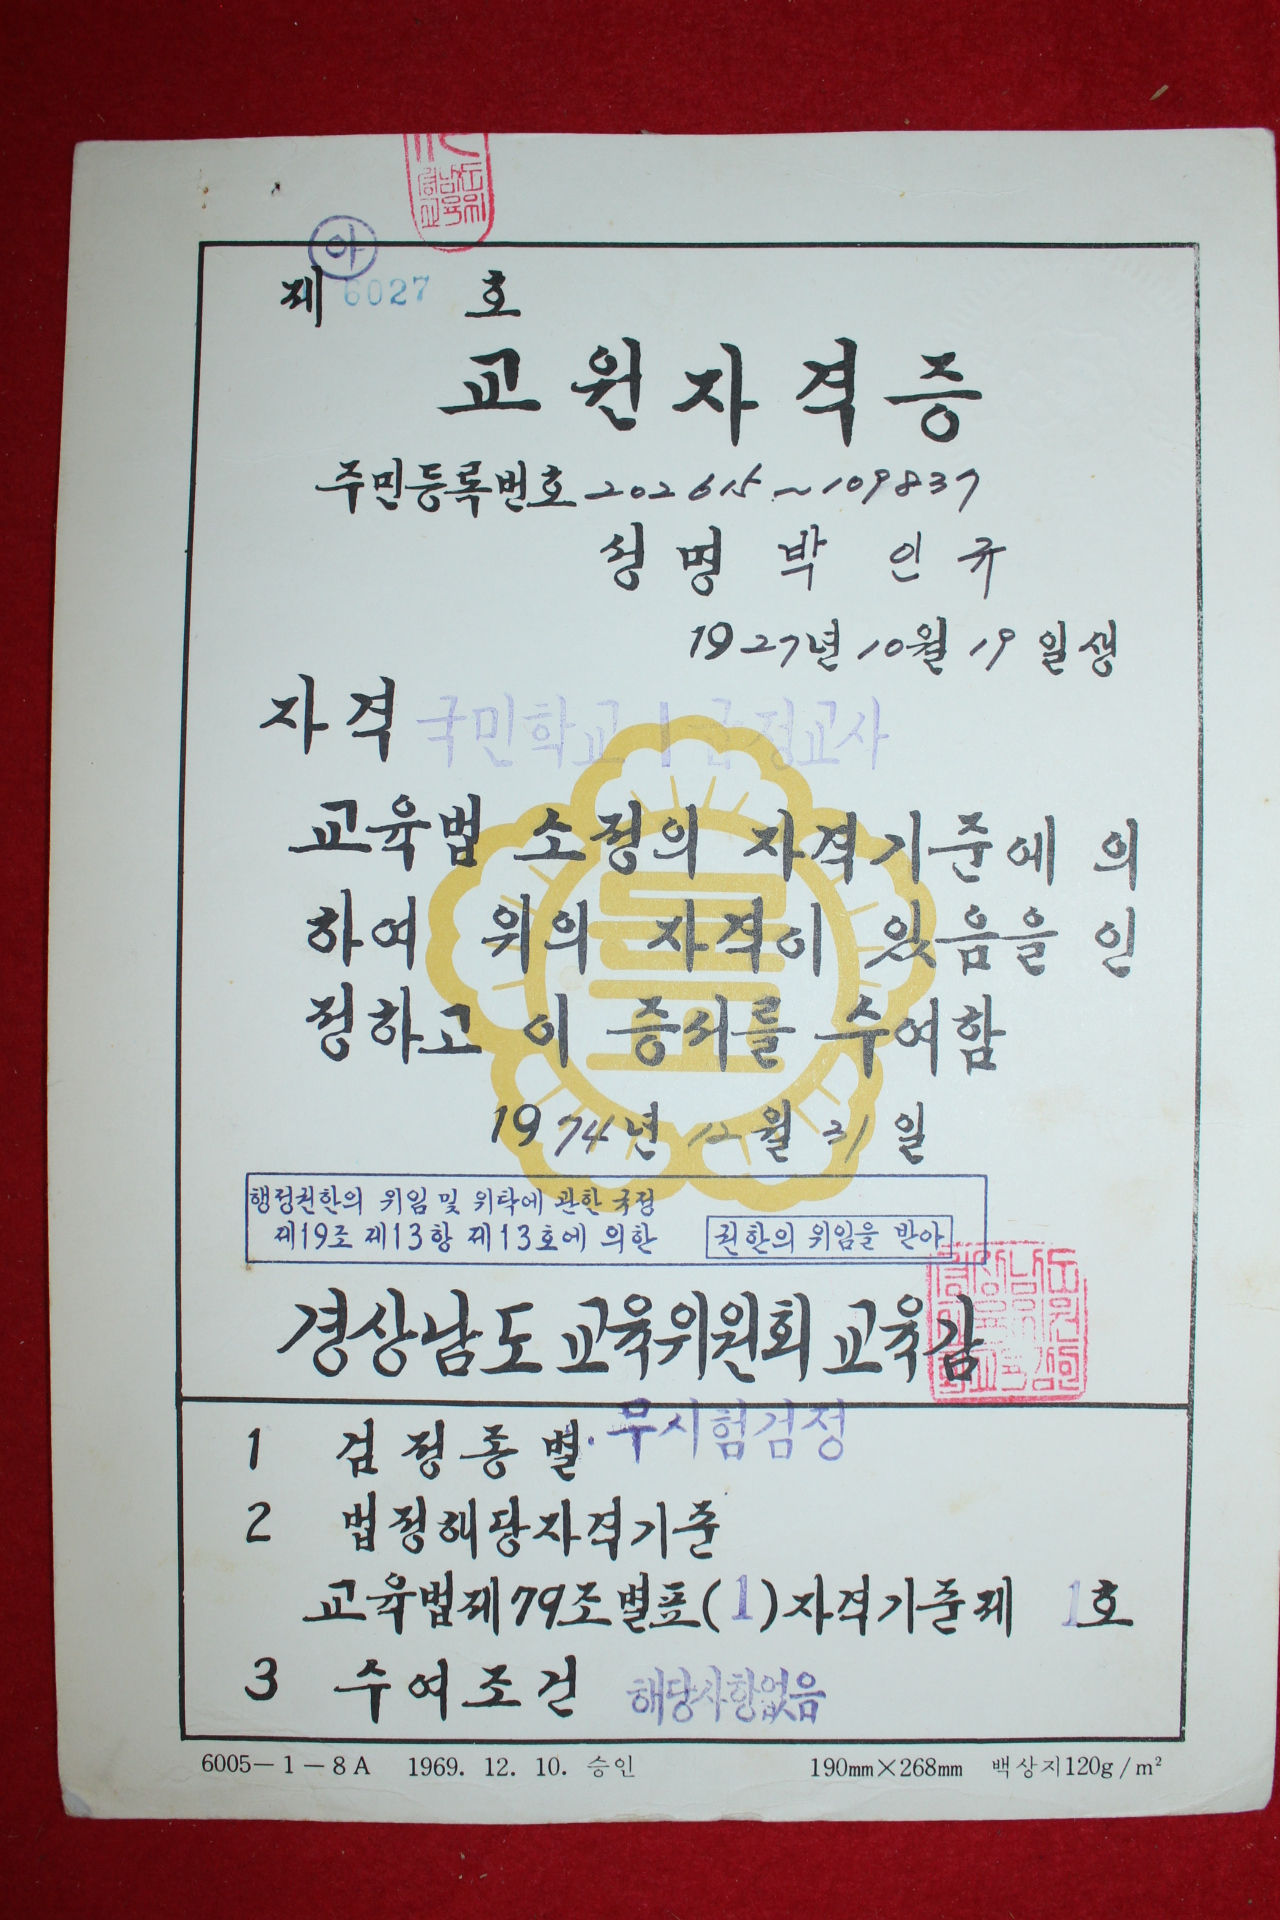 아
제 6027 호
교원자격증
주민등록번호 202615~109837
성명 박 인 규
1927년 10월 19일생
자격 국민학교 1급정교사
교육법 소정의 자격기준에 의
하여 위의 자격이 있음을 인
정하고 이 증서를 수여함
1974년 12월 31일
행정권한의 위임 및 위탁에 관한 규정
제19조 제13항 제13호에 의한 권한의 위임을 받아
경상남도 교육위원회 교육감
1 검정종별. 무시험검정
2 법정해당자격기준
교육법제79조별표(1)자격기준제 1호
3 수여조건 해당사항없음
6005-1-8A 1969. 12. 10. 승인 190mm×268mm 백상지120g/m²